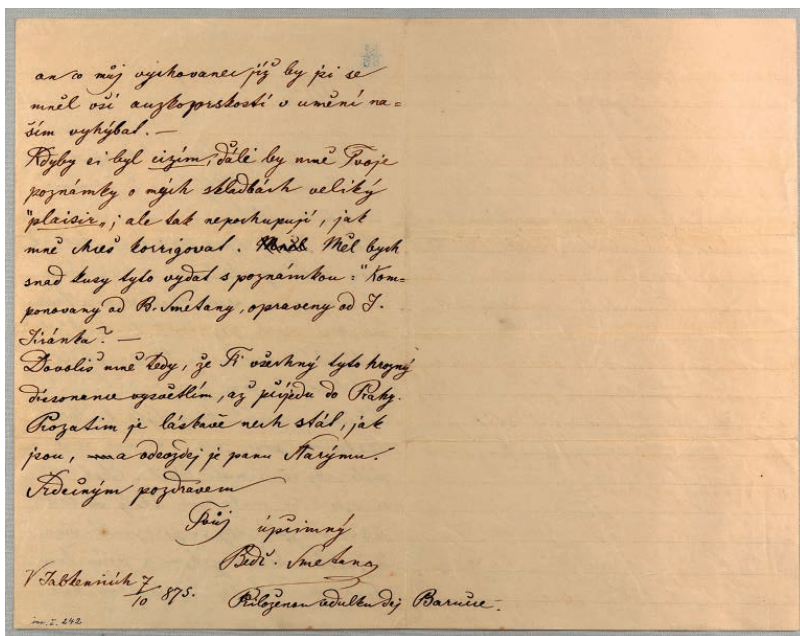 an co můj vychovanec jíž by jsi se
mněl vší auzkoprskostí v umění na=
ším vyhýbat. —
Kdyby si byl cizím, dáli by mně Tvoje
poznámky o mých skladbách veliký
"plaisir„; ale tak nepochupuji, jak
mně chceš korrigovat. Měl bych
snad kusy tyto vydat s poznámkou: "Kom=
ponovany od B. Smetany, opraveny od J.
Jiránka? —
Dovolíš mně tedy, že Ti všechný tyto hrozný
dissonance vysvětlím, až přijedu do Prahy.
Prozatim je láskavě nech stát, jak
jsou, a odevzdej je panu Starýmu.
Srdečným pozdravem
Tvůj upřimný
Bedř. Smetana
V Jabkenicích 7/10 875.
Přiloženou cedulku dej Barušce.
inv. I. 242